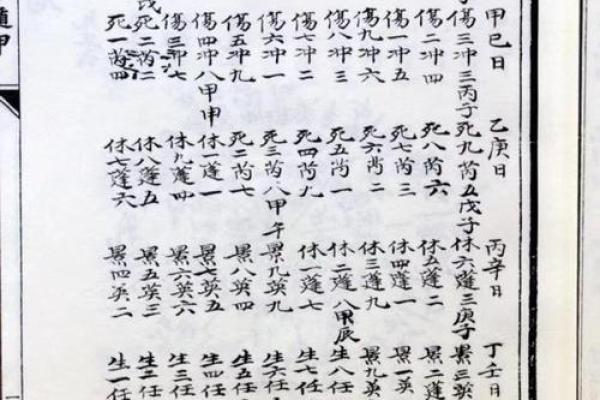 甲巳日　乙庚日　丙辛日　丁壬日
傷三冲三丙子死九芮五戊子休六蓬三庚子景三英
傷二冲四　死八芮六　休五蓬二　景二蓬
傷一冲五　死七芮三　休四蓬一　景一英
傷九冲六　死六芮二　休三蓬九　景九英
傷八冲三　死五芮一　休二蓬八甲辰　生八任
傷七冲二　死四芮九　休一蓬七　生七任
傷六冲一　死三芮八甲午　景九英九　生六任
傷五冲九　死二芮七　景八英四　生五任
傷四冲八甲申　休一蓬一　景七英五　生四任
傷三冲七　休九蓬四　景六英六　生三任
死二芮二　休八蓬五　景五英三　生二任
死一芮四　休七蓬六　景四英二　生一任
遁甲